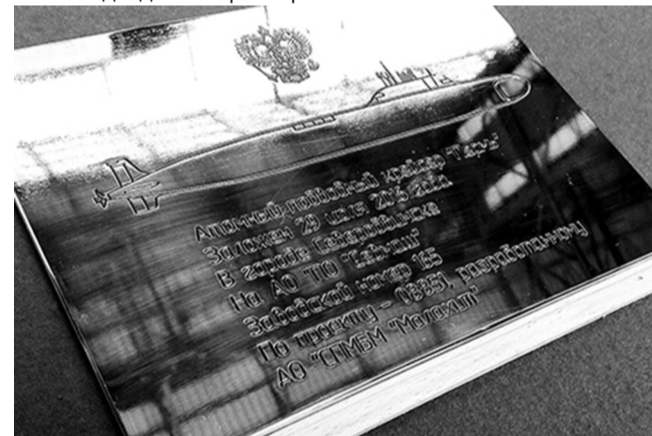 Атомный подводный крейсер "Пермь"
Заложен 29 июля 2016 года
В городе Северодвинске
На АО "ПО "Севмаш"
Заводской номер 165
По проекту – 08851, разработанному
АО "СПМБМ "Малахит"